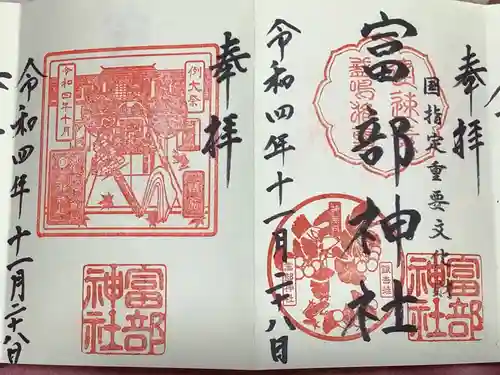 奉拝
国指定重要文化財
富部神社
令和四年十一月二十八日
富部
神社
奉拝
例大祭
令和四年十月
富部
神社
令和四年十一月二十八日